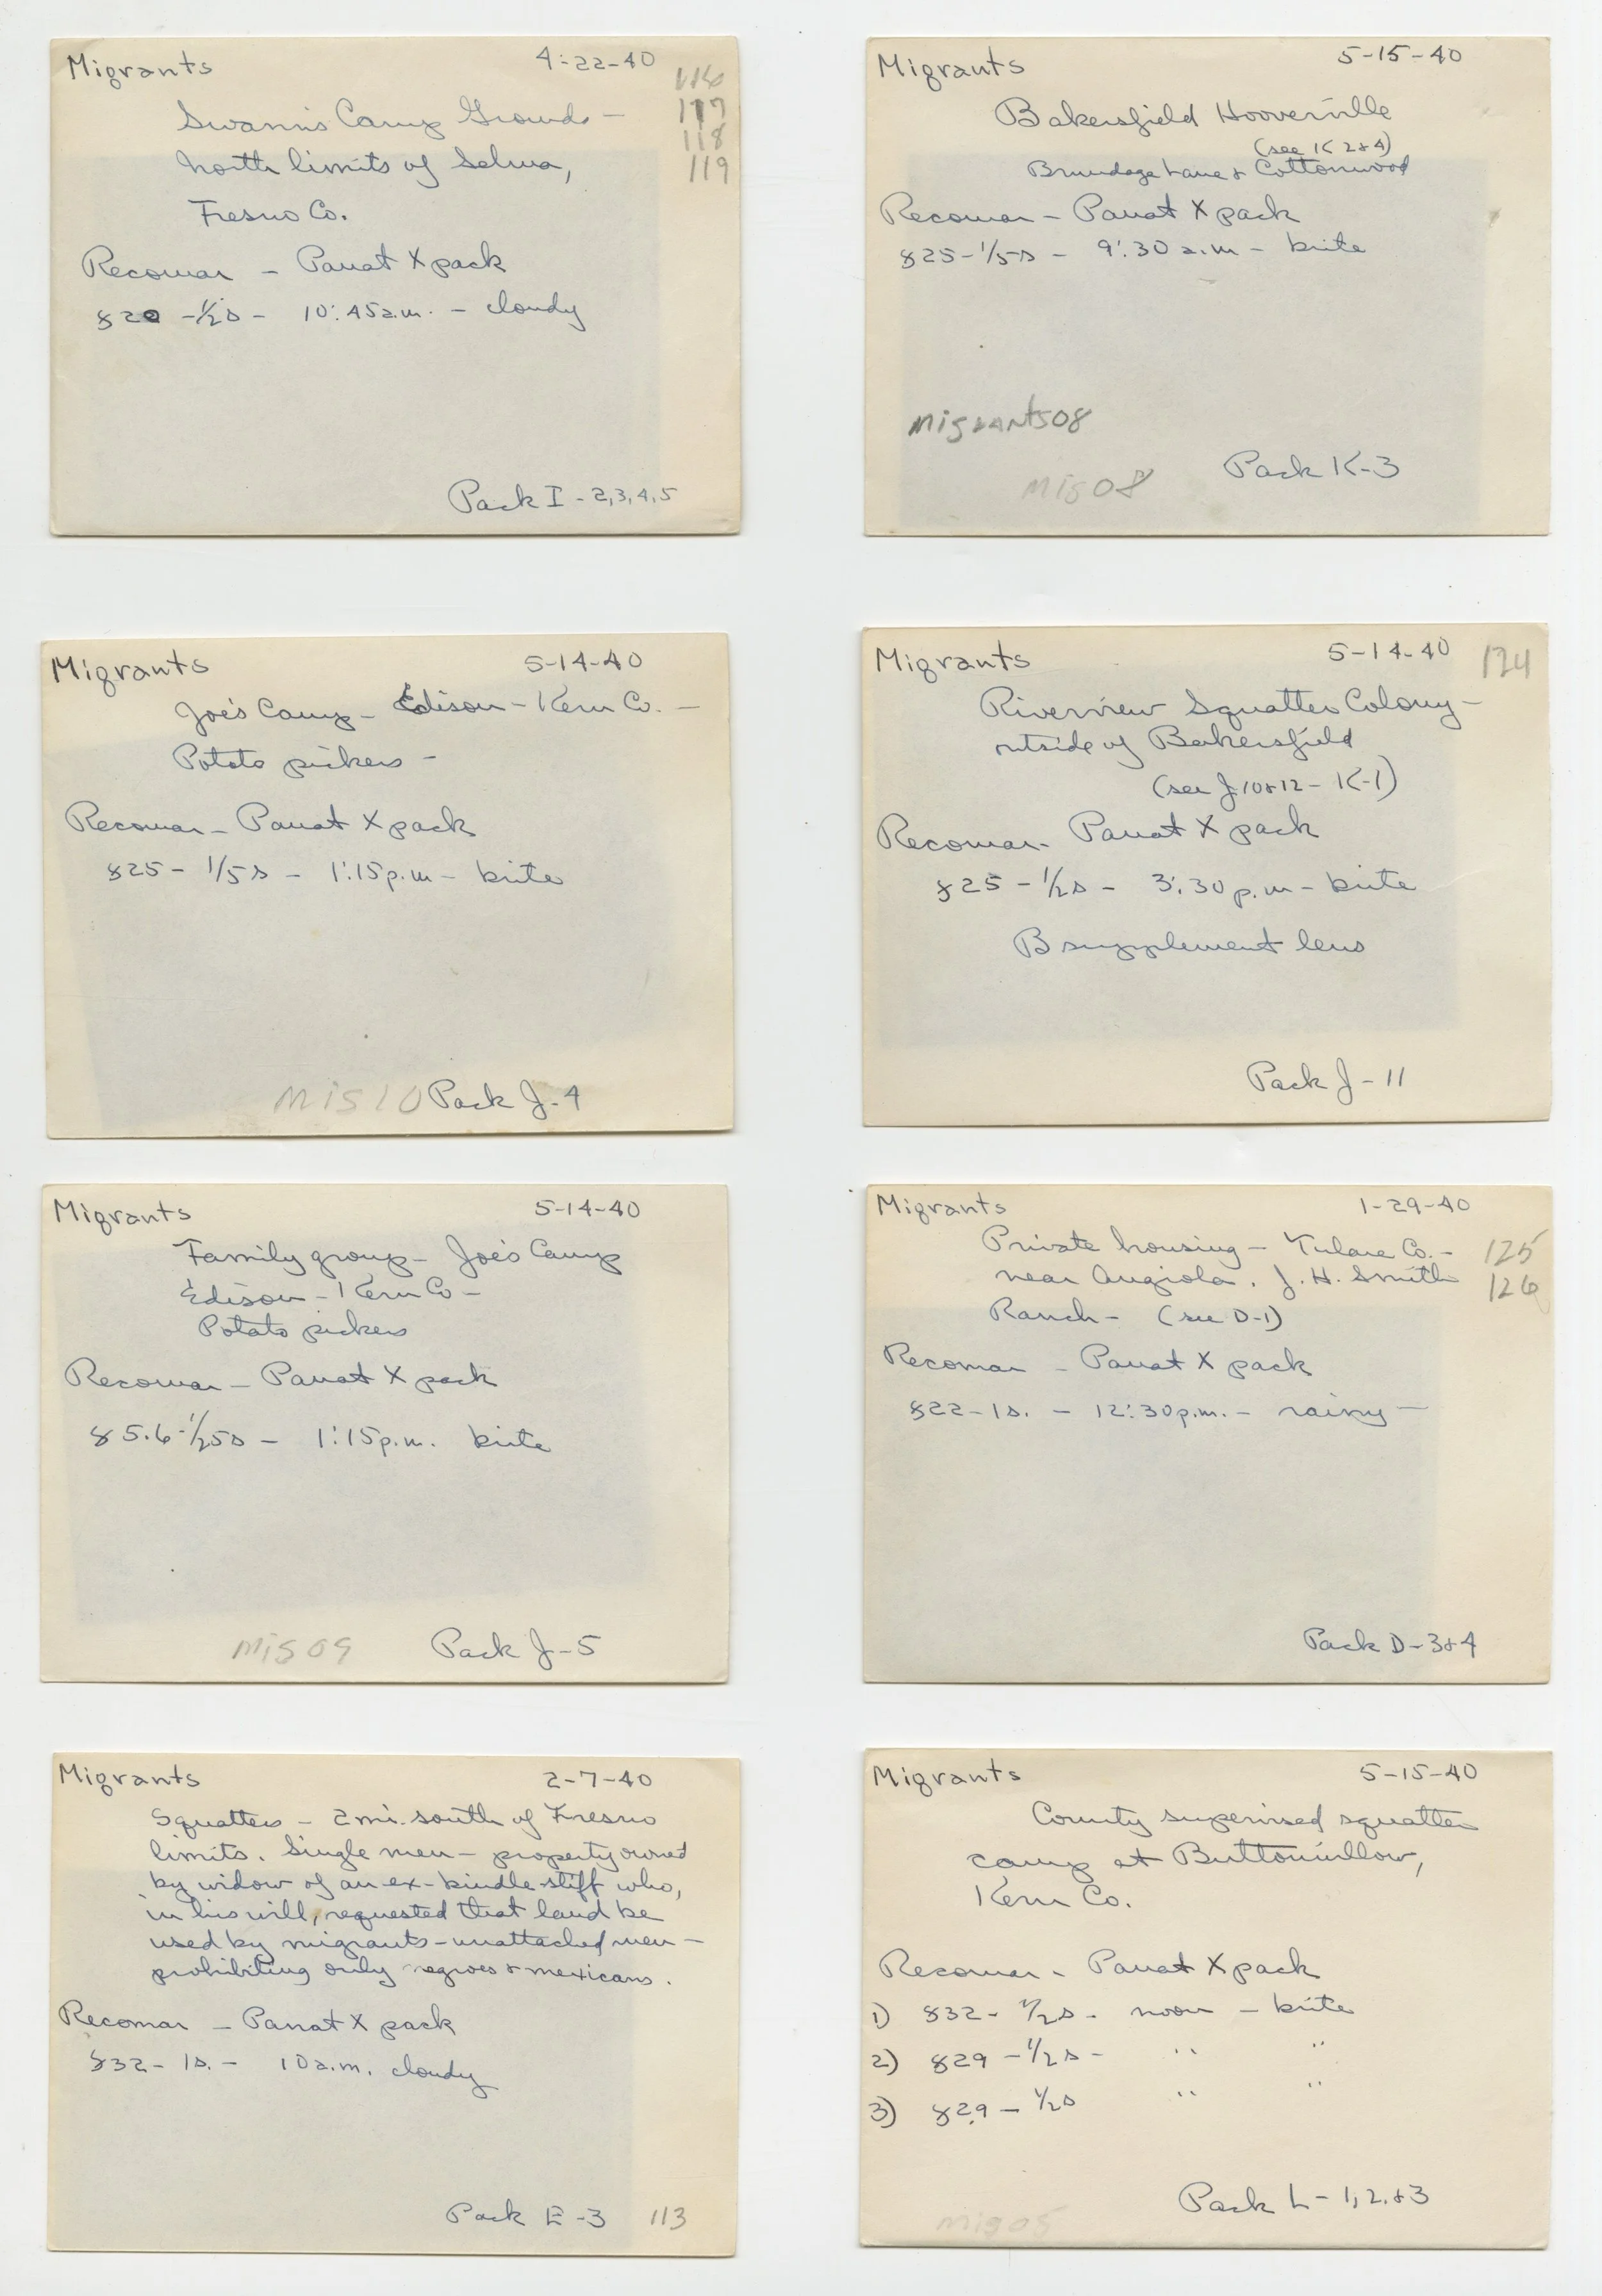 Migrants 4-22-40
116
Swann's Camp Grounds —
117
118
north limits of Selma,
119
Fresno Co.
Recomar — Panat X pack
f20 - 1/2s - 10:45 a.m. - cloudy
Pack I - 2,3,4,5
Migrants 5-15-40
Bakersfield Hooverville
(see K 2 & 4)
Brundage Lane & Cottonwood
Recomar — Panat X pack
f25 - 1/5s - 9:30 a.m - brite
Migrants08
Mig08
Pack K-3
Migrants 5-14-40
Joe's Camp - Edison - Kern Co. -
Potato pickers -
Recomar - Panat X pack
f25 - 1/5s - 1:15 p.m - brite
Mig10 Pack J-4
Migrants 5-14-40 124
Riverview Squatter Colony -
outside of Bakersfield
(see J 10 & 12 - K-1)
Recomar - Panat X pack
f25 - 1/2s - 3:30 p.m - brite
B supplement lens
Pack J - 11
Migrants 5-14-40
Family group - Joe's Camp
Edison - Kern Co -
Potato pickers
Recomar - Panat X pack
f5.6 - 1/25s - 1:15 p.m. brite
Mig09 Pack J-5
Migrants 1-29-40
Private housing - Tulare Co. - 125
near Angiola. J.H. Smith 126
Ranch - (see D-1)
Recomar - Panat X pack
f22 - 1s. - 12:30 p.m. - rainy -
Pack D-3 & 4
Migrants 2-7-40
Squatters - 2 mi. south of Fresno
limits. Single men - property owned
by widow of an ex-bindle-stiff who,
in his will, requested that land be
used by migrants - unattached men -
prohibiting only negroes & mexicans.
Recomar - Panat X pack
f32 - 1s. - 10 a.m. cloudy
Pack E-3 113
Migrants 5-15-40
County supervised squatter
camp at Buttonwillow,
Kern Co.
Recomar - Panat X pack
1) f32 - 1/2s - noon - brite
2) f29 - 1/2s - " "
3) f29 - 1/2s " "
Pack L - 1, 2, & 3
mig05